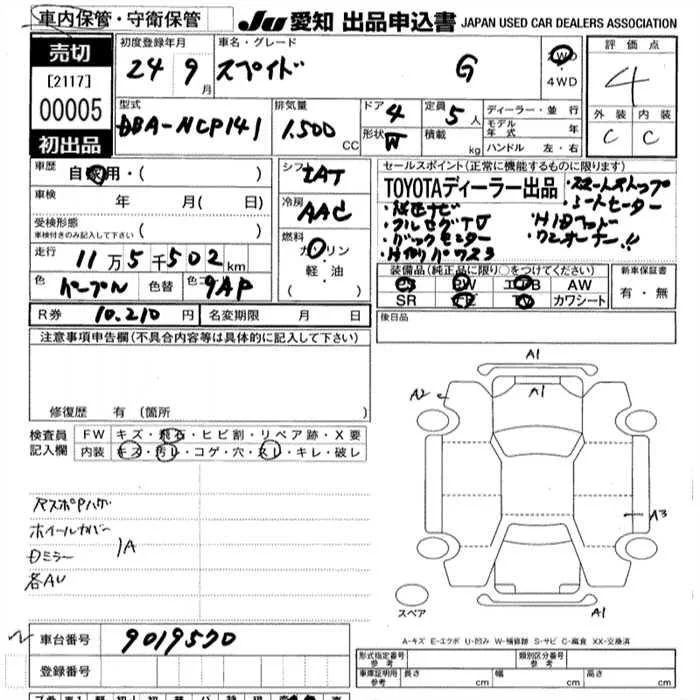 車内保管・守衛保管
JU 愛知 出品申込書 JAPAN USED CAR DEALERS ASSOCIATION
売切
[2117]
00005
初出品
初度登録年月
24 9月
車名・グレード
スペイド G
2WD
・
4WD
評価点
4
外装 内装
C C
型式
DBA-NCP141
排気量
1.500 CC
ドア 4
形状 W
定員 5人
積載 kg
ディーラー・並行
モデル年式 年
ハンドル 左・右
車歴 自家用・( )
車検 年 月( 日)
受検形態
車検付きのみ記入して下さい ( )
走行 11万5千502km
色 パープル 色替 色コ 9AP
シフト
冷房 AAC
燃料
ガソリン
・
軽・油
( )
セールスポイント(正常に機能するものに限ります)
TOYOTAディーラー出品
・スマートストップ
・シートヒーター
・純正ナビ
・フルセグTV
・HIDヘッド
・ワンオーナー!!
装備品(純正品に限り○をつけてください)
PS PW エアB AW
SR TV カワシート
新車保証書
有・無
R券 10.210円 名変期限 月 日
後日品
注意事項申告欄(不具合内容等は具体的に記入して下さい)
修復歴 有(箇所 )
検査員
記入欄
FW キズ・飛石・ヒビ割・リペア跡・X要
内装 キズ・汚レ・コゲ・穴・スレ・キレ・破レ
ホイールカバー
Dミラー
1A
各AU
A1
A1
A2
A3
A1
スペア
A-キズ E-エクボ U-凹み W-補修跡 S-サビ C-腐食 XX-交換済
車台番号 9019570
登録番号
形式指定番号
参考
類別区分番号
参考
車庫証明用
参考
長さ cm 幅 cm 高さ cm